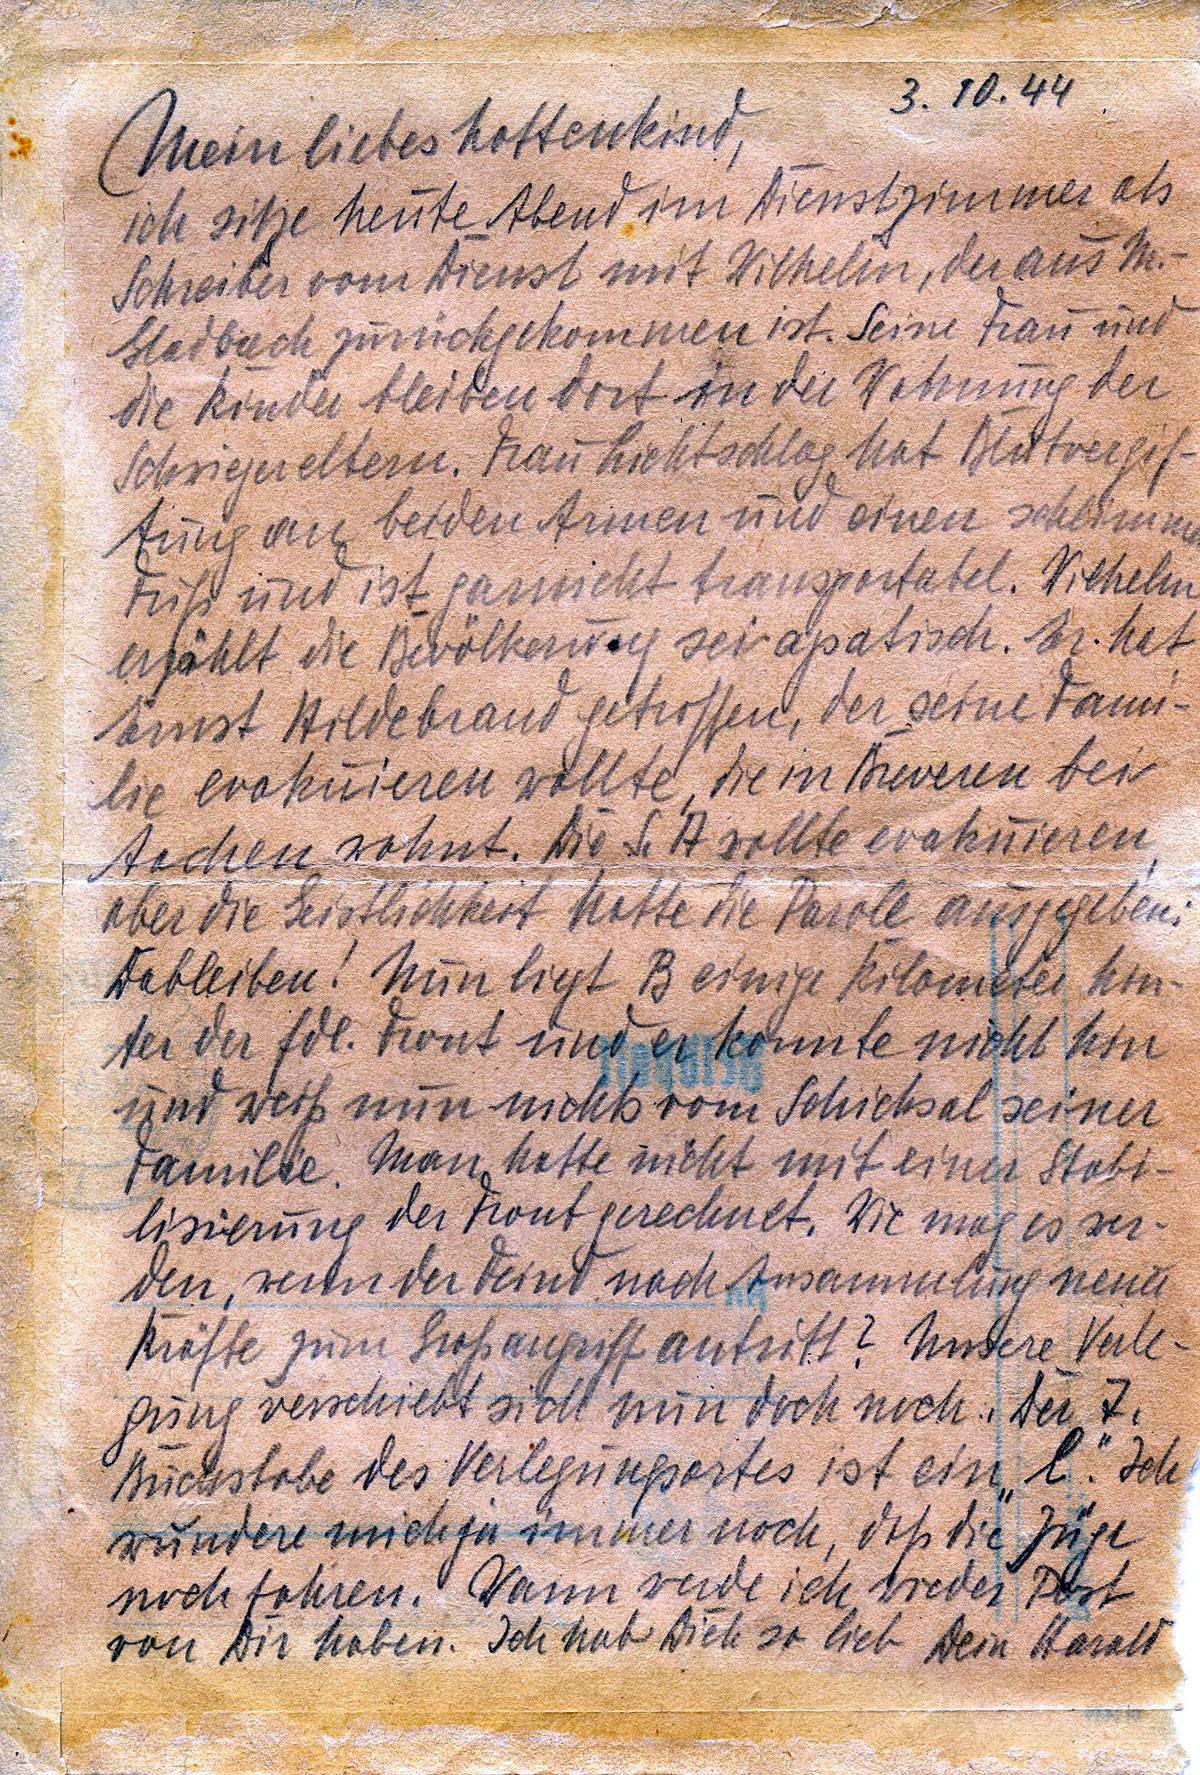 3. 10. 44
Mein liebes Lottenkind,
ich sitze heute Abend im Dienstzimmer als
Schreiber vom Dienst mit Wilhelm, der aus M.-
Gladbach zurückgekommen ist. Seine Frau und
die Kinder bleiben dort in der Wohnung der
Schwiegereltern. Frau Lichtschlag hat Blutvergif-
tung an beiden Armen und einen schlimmen
Fuß und ist garnicht transportabel. Wilhelm
erzählt die Bevölkerung sei apatisch. Er hat
Ernst Hildebrand getroffen, der seine Fami-
lie evakuieren wollte, die in Breveren bei
Aachen wohnt. Die S.A wollte evakuieren,
aber die Geistlichkeit hatte die Parole ausgegeben:
Dableiben! Nun liegt B einige Kilometer hin-
ter der fdl. Front und er konnte nicht hin
und weiß nun nichts vom Schicksal seiner
Familie. Man hatte nicht mit einer Stabi-
lisierung der Front gerechnet. Wie mag es wer-
den, wenn der Feind nach Ansammlung neuer
Kräfte zum Großangriff antritt? Unsere Verle-
gung verschiebt sich nun doch noch. Der 7.
Buchstabe des Verlegungsortes ist ein „l". Ich
wundere mich ja immer noch, daß die Züge
noch fahren. Wann werde ich wieder Post
von Dir haben. Ich hab Dich so lieb Dein Harald
Feldpost